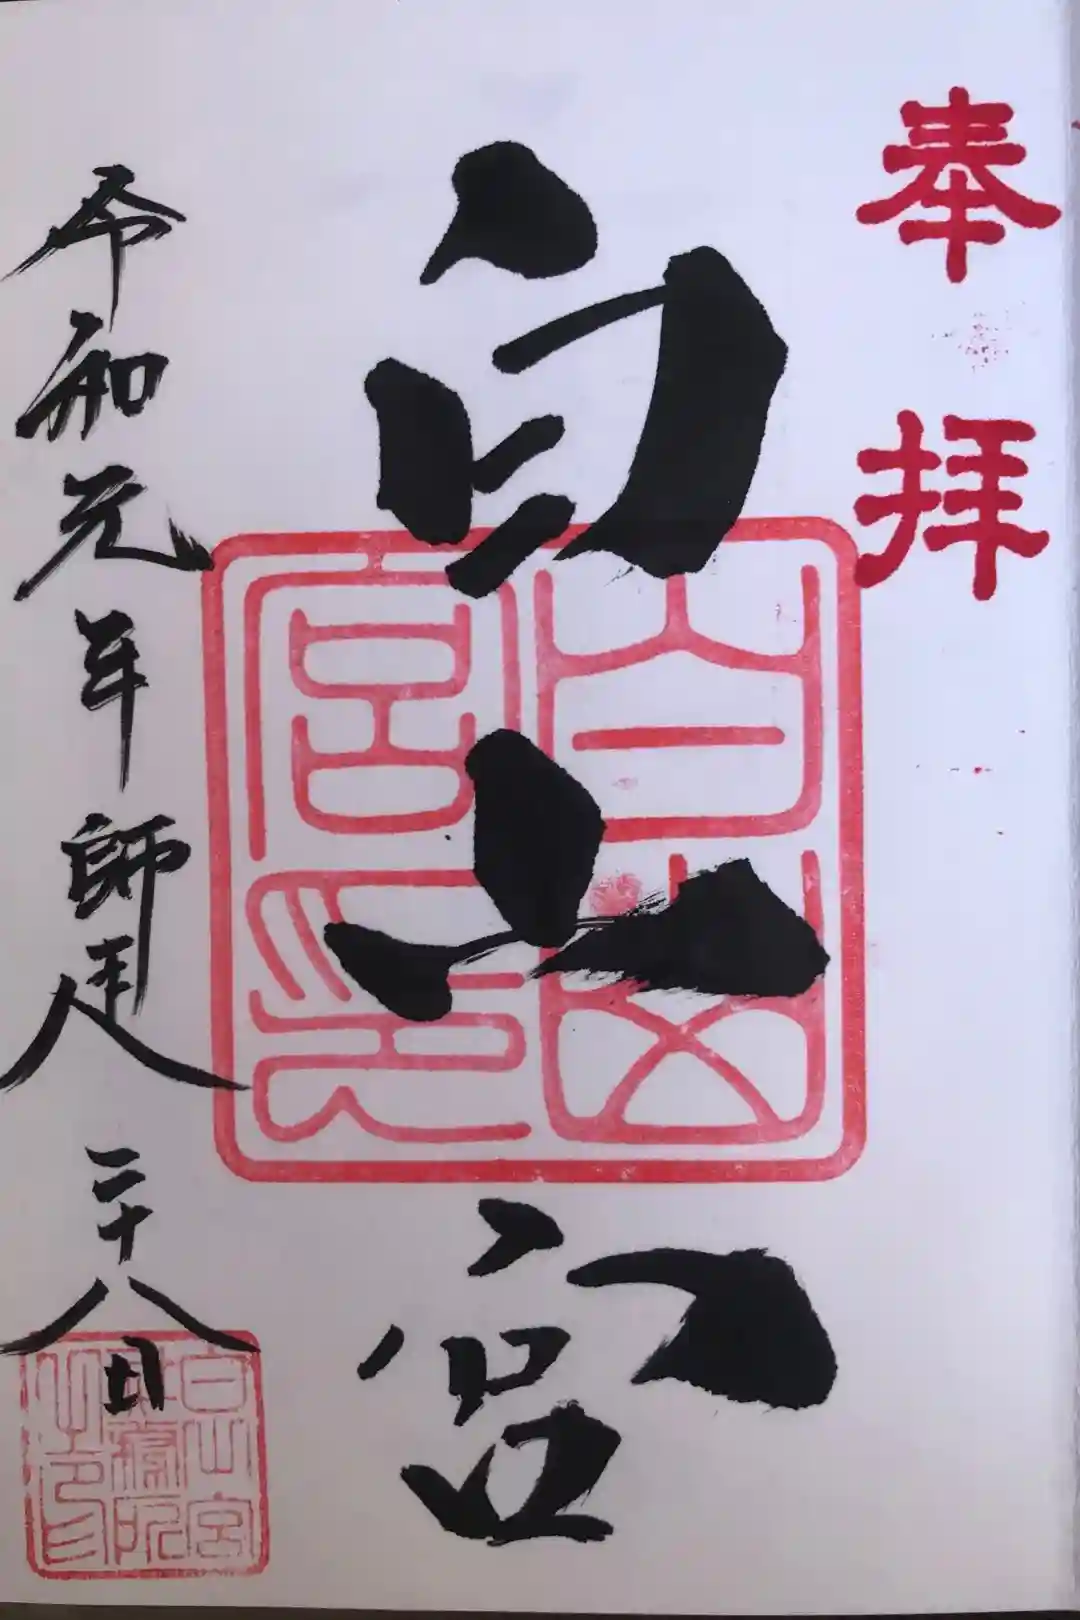 奉拝
白山宮
白山宮印
令和元年師走二十八日
白山宮
之印